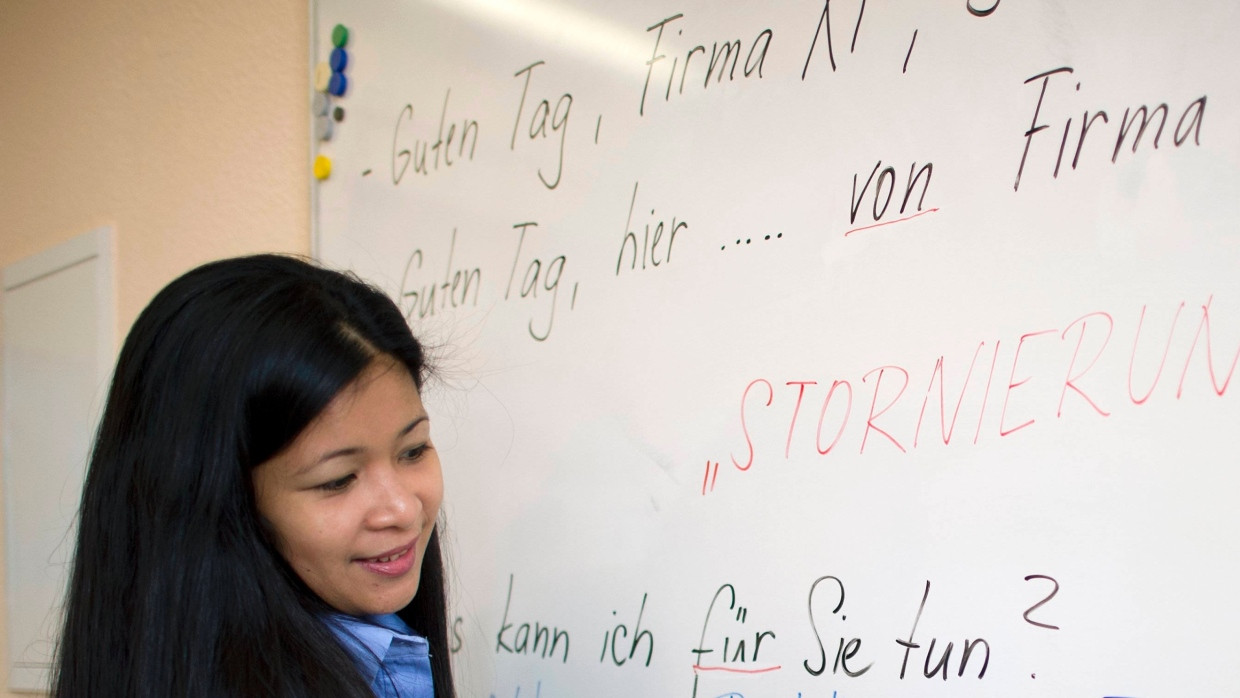 - Guten Tag, Firma XY,
Guten Tag, hier ..... von Firma
„STORNIERUN
s kann ich für Sie tun?